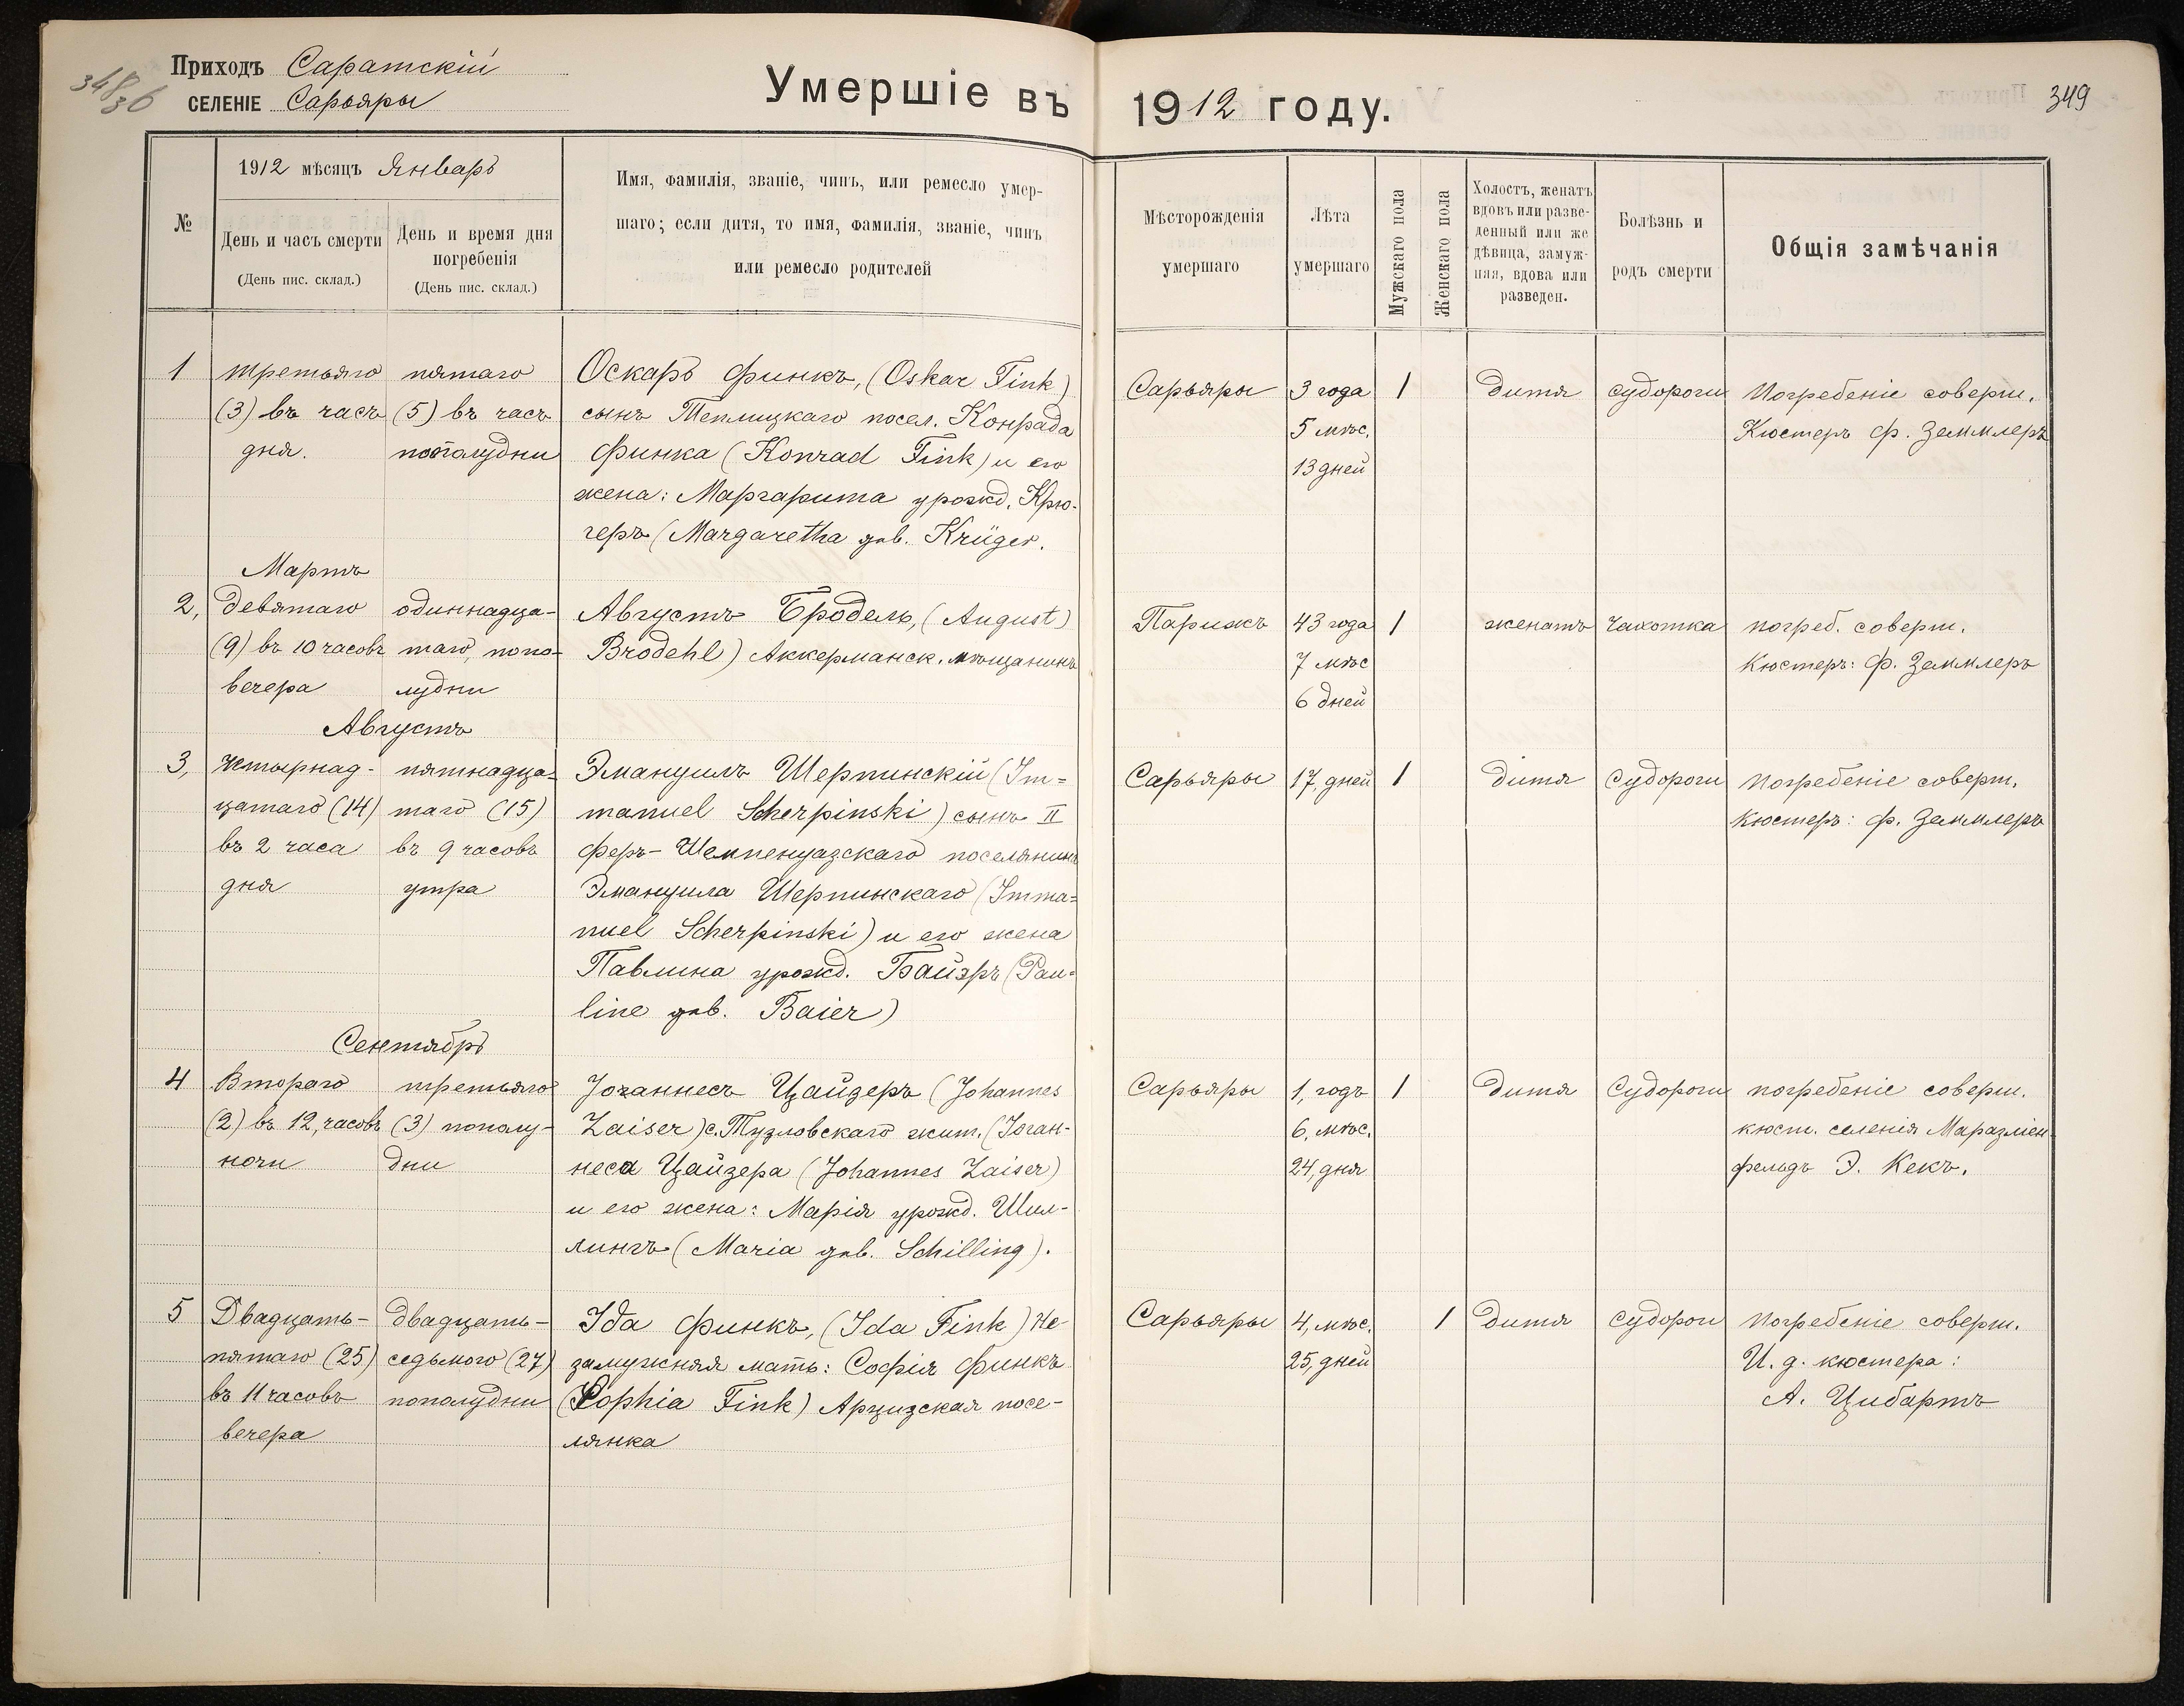 348
36
Приходъ Саратскій
СЕЛЕНІЕ Сарьяры
Умершіе въ 1912 году.
349
№
1912 мѣсяцъ Январь
День и часъ смерти
(День пис. склад.)
День и время дня
погребенія
(День пис. склад.)
Имя, фамилія, званіе, чинъ, или ремесло умер-
шаго; если дитя, то имя, фамилія, званіе, чинъ
или ремесло родителей
Мѣсторожденія
умершаго
Лѣта
умершаго
Мужскаго пола
Женскаго пола
Холостъ, женатъ
вдовъ или разве-
денный или же
дѣвица, замуж-
няя, вдова или
разведен.
Болѣзнь и
родъ смерти
Общія замѣчанія
1
третьяго
(3) въ часъ
дня.
пятаго
(5) въ часъ
пополудни
Оскаръ Финкъ, (Oskar Fink)
сынъ Теплицкаго посел. Конрада
Финка (Konrad Fink) и его
жена: Маргарита урожд. Крю-
геръ (Margaretha geb. Krüger.
Сарьяры
3 года
5 мѣс.
13 дней
1
дитя
судороги
Погребеніе соверш.
Кюстеръ Ф. Земмлеръ
Мартъ
2,
девятаго
(9) въ 10 часовъ
вечера
одиннадца-
таго, попо-
лудни
Августъ Бродель, (August)
Brodehl) Аккерманск. мѣщанинъ
Парижъ
43 года
7 мѣс
6 дней
1
женатъ
Чахотка
погреб. соверш.
Кюстеръ: Ф. Земмлеръ
Августъ
3,
четырнад-
цатаго (14)
въ 2 часа
дня
пятнадца-
таго (15)
въ 9 часовъ
утра
Эмануилъ Шерпинскій (Im=
manuel Scherpinski) сынъ II
Феръ-Шампенуазскаго поселянина
Эмануила Шерпинскаго (Imma=
nuel Scherpinski) и его жена
Павлина урожд. Байэръ (Pau=
line geb. Baier)
Сарьяры
17 дней
1
дитя
Судороги
Погребеніе соверш.
Кюстеръ: Ф. Земмлеръ
Сентябрь
4
Втораго
(2) въ 12, часовъ
ночи
третьяго
(3) пополу-
дни
Іоганнесъ Цайзеръ (Johannes
Zaiser) с. Тузловскаго жит. (Іоган-
неса Цайзера (Johannes Zaiser)
и его жена: Марія урожд. Шил-
лингъ (Maria geb. Schilling).
Сарьяры
1, годъ
6, мѣс.
24, дня
1
Дитя
Судороги
погребеніе соверш.
кюст. селенія Маразліен-
фельдъ Э. Кекъ.
5
Двадцать-
пятаго (25)
въ 11 часовъ
вечера
двадцать-
седьмого (27)
пополудни
Ида Финкъ, (Ida Fink) Не
замужняя мать: Софія Финкъ
(Sophia Fink) Арцизская посе-
лянка
Сарьяры
4, мѣс.
25, дней
1
дитя
судорои
Погребеніе соверш.
И. д. кюстера:
А. Цибартъ